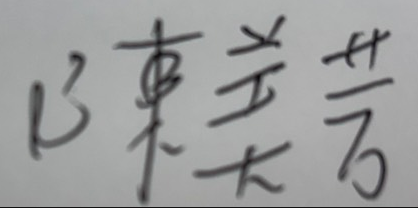 陳美芳